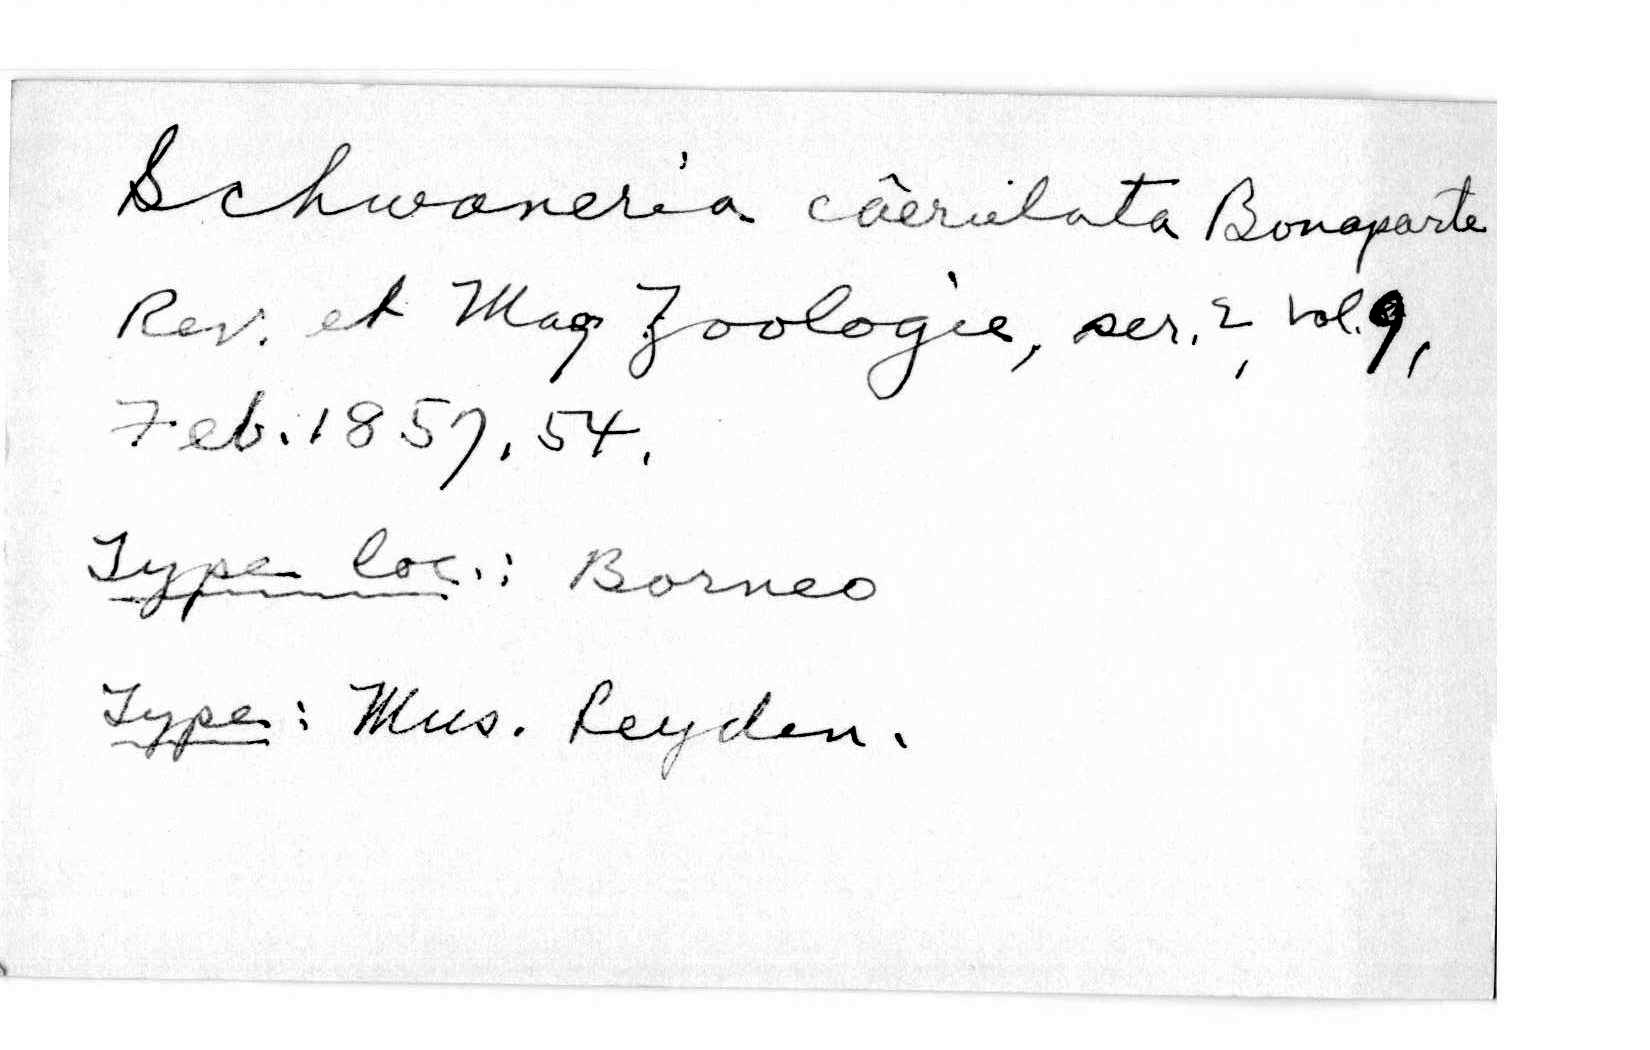 Schwaneria câerulata Bonaparte
Rev. et Mag Zoologie, ser. 2, vol. 9,
Feb. 1857, 54.
Type loc.: Borneo
Type: Mus. Leyden.